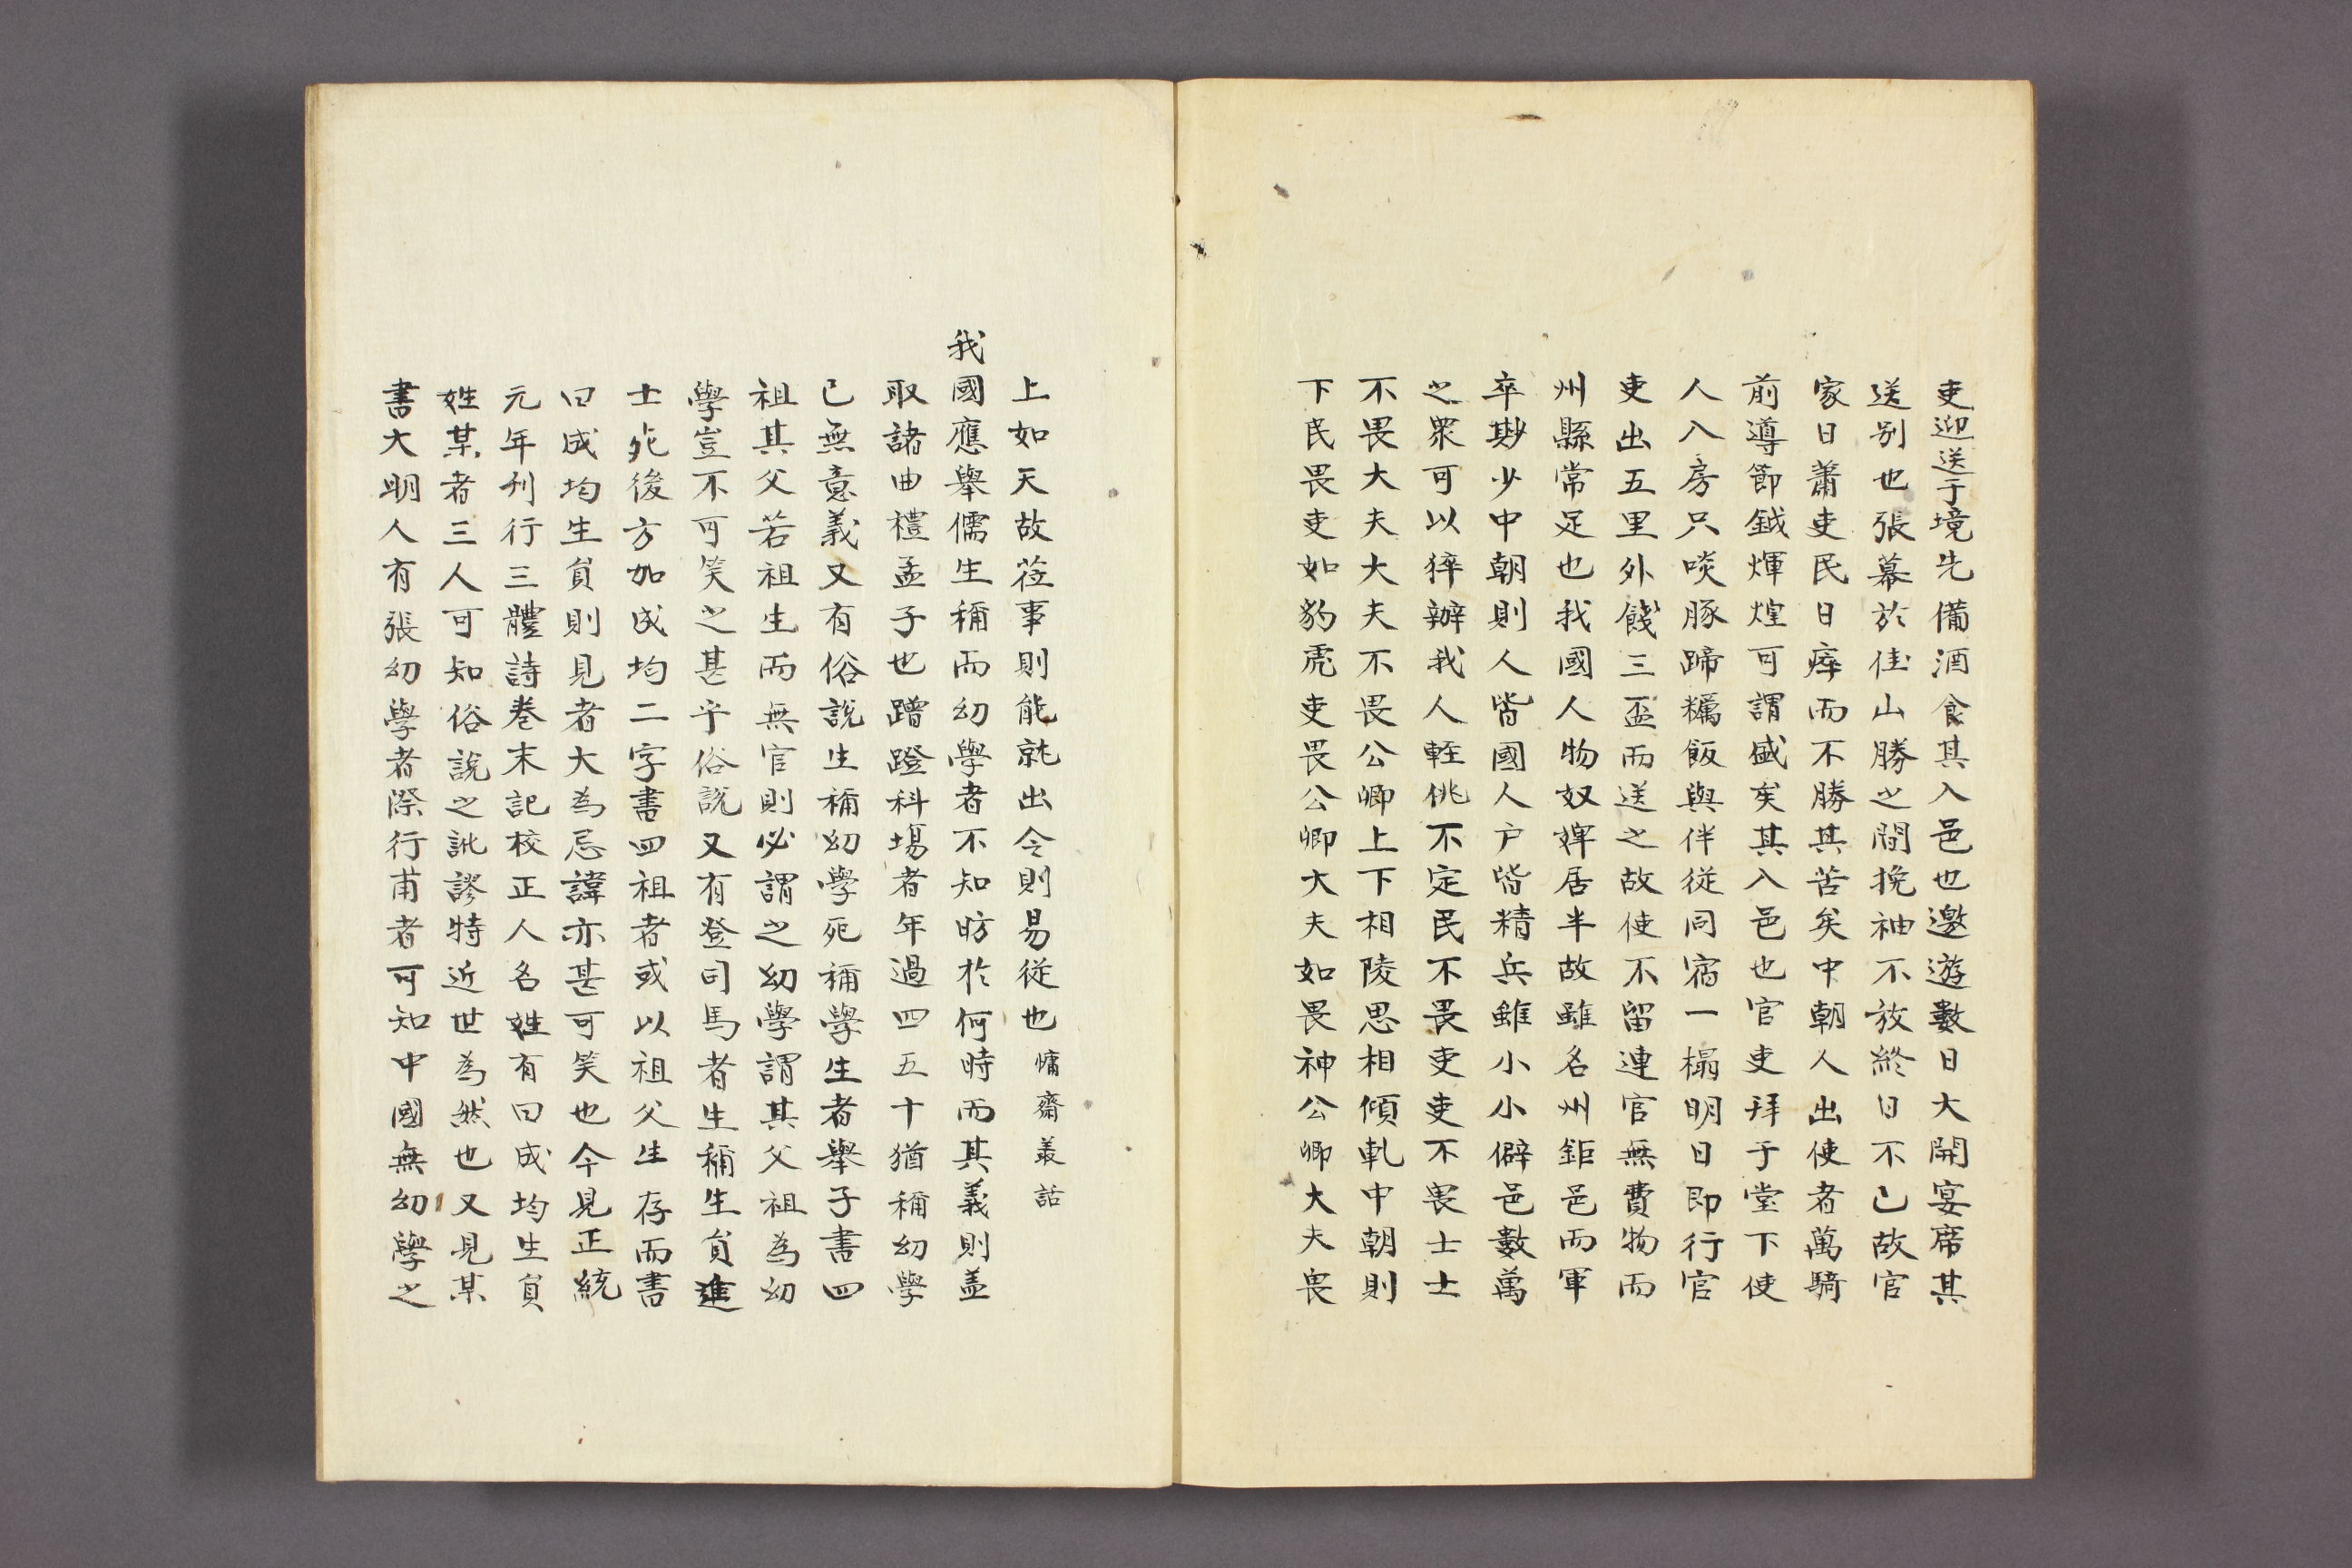 吏迎送于境先備酒食其入邑也邀遊數日大開宴席其
送別也張幕於佳山勝之間挽袖不放終日不已故官
家日蕭吏民日瘁而不勝其苦矣中朝人出使者萬騎
前導節鉞煇煌可謂盛矣其入邑也官吏拜于堂下使
人入房只啖豚蹄糲飯與伴從同宿一榻明日即行官
吏出五里外餞三盃而送之故使不留連官無費物而
州縣常足也我國人物奴婢居半故雖名州鉅邑而軍
卒尠少中朝則人皆國人戶皆精兵雖小小僻邑數萬
之衆可以猝辦我人輕佻不定民不畏吏吏不畏士士
不畏大夫大夫不畏公卿上下相陵思相傾軋中朝則
下民畏吏如豹虎吏畏公卿大夫如畏神公卿大夫畏
上如天故莅事則能就出令則易從也慵齋叢話
我國應擧儒生稱而幼學者不知昉於何時而其義則盖
取諸曲禮孟子也蹭蹬科場者年過四五十猶稱幼學
已無意義又有俗說生稱幼學死稱學生者擧子書四
祖其父若祖生而無官則必謂之幼學謂其父祖為幼
學豈不可笑之甚乎俗說又有登司馬者生稱生負進
士死後方加成均二字書四祖者或以祖父生存而書
曰成均生負則見者大為忌諱亦甚可笑也今見正統
元年刋行三體詩卷末記校正人名姓有曰成均生負
姓某者三人可知俗說之訛謬特近世為然也又見某
書大明人有張幼學者際行甫者可知中國無幼學之